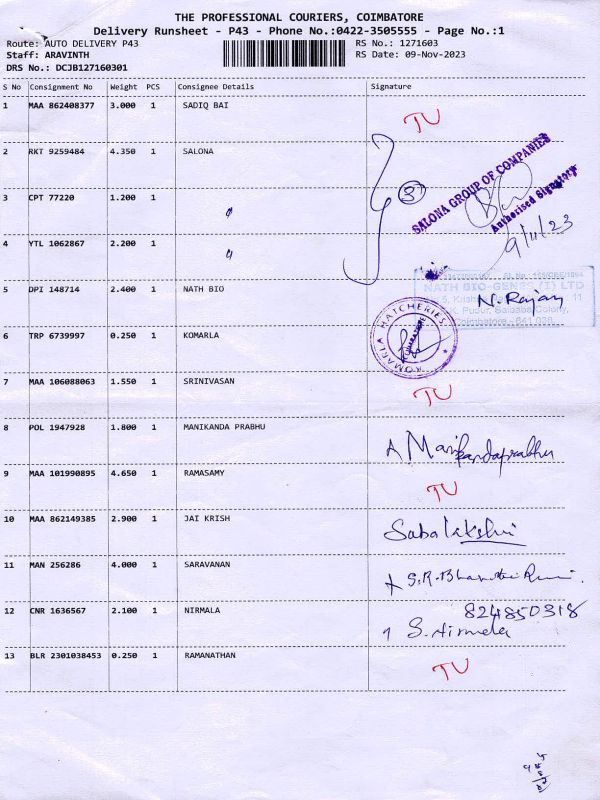 THE PROFESSIONAL COURIERS, COIMBATORE
Delivery Runsheet - P43 - Phone No.:0422-3505555 - Page No.:1
Route: AUTO DELIVERY P43 RS No.: 1271603
Staff: ARAVINTH RS Date: 09-Nov-2023
DRS No.: DCJB127160301
S No Consignment No Weight PCS Consignee Details Signature
1 MAA 862408377 3.000 1 SADIQ BAI TU
2 RKT 9259484 4.350 1 SALONA
SALONA GROUP OF COMPANIES
3 CPT 77220 1.200 1 3
Authorised Signatory
4 YTL 1062867 2.200 1 9/11/23
5 DPI 148714 2.400 1 NATH BIO N. Rajan
NATH BIO-GENES (I) LTD
6 TRP 6739997 0.250 1 KOMARLA KOMARLA HATCHERIES
7 MAA 106088063 1.550 1 SRINIVASAN TU
8 POL 1947928 1.800 1 MANIKANDA PRABHU A Manikandaprabhu
9 MAA 101990895 4.650 1 RAMASAMY TU
10 MAA 862149385 2.900 1 JAI KRISH
11 MAN 256286 4.000 1 SARAVANAN
12 CNR 1636567 2.100 1 NIRMALA 824850318
S. Nirmala
13 BLR 2301038453 0.250 1 RAMANATHAN TU